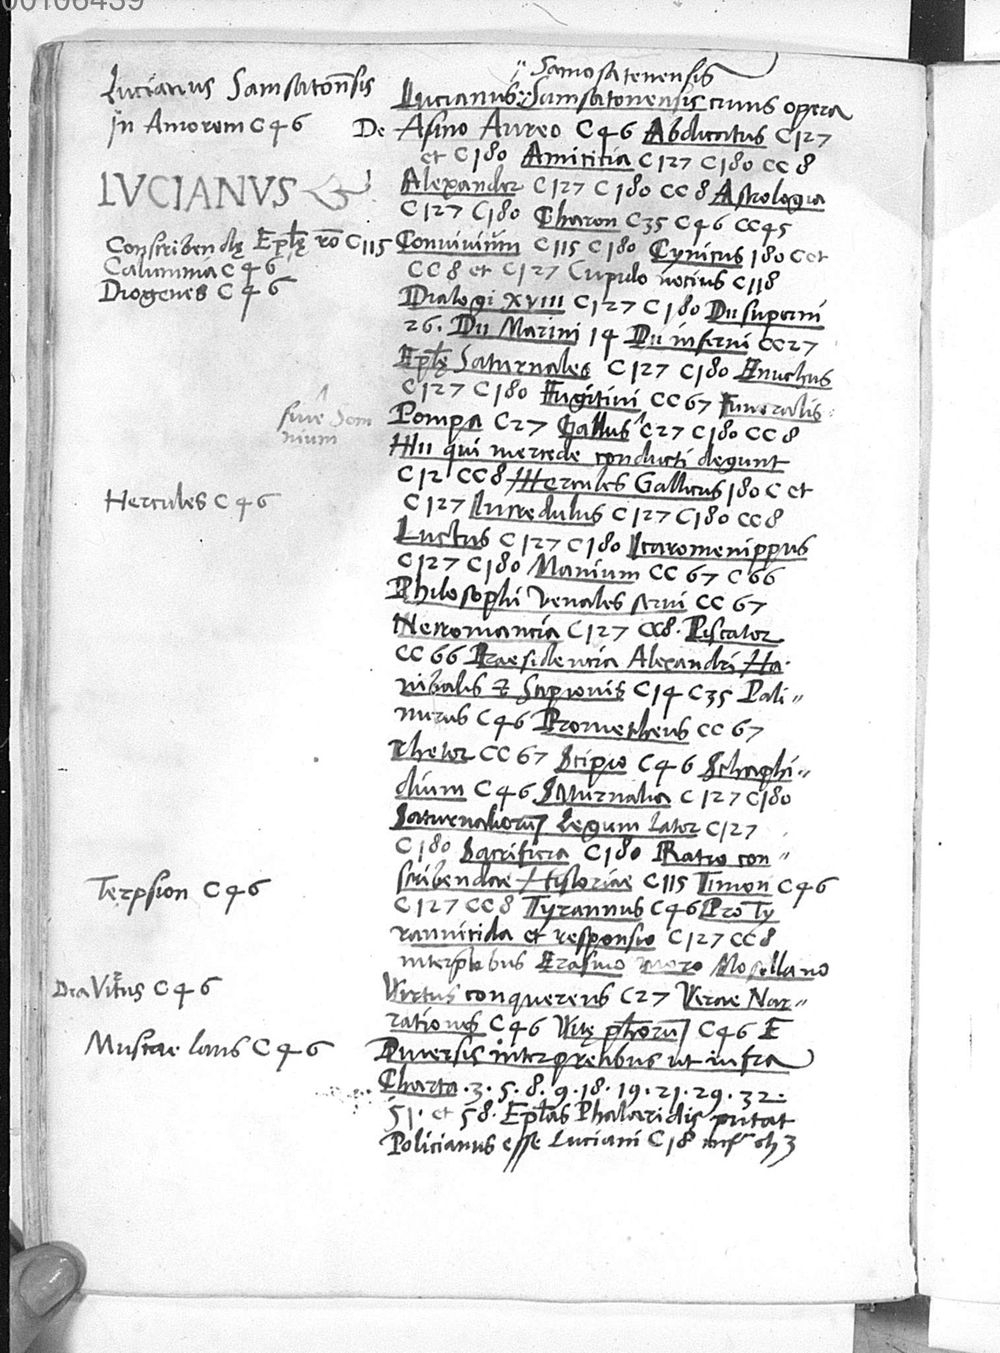 00106439
Lucianus Samsatoñsis
in Amorem C 46
LVCIANVS
Conscribendę Epl̃ę rõ C 115
Calumnia C 46
Diogenes C 46
sive Som
nium
Hercules C 46
Terpsion C 46
Dea Virtus C 46
Muscae laus C 46
Samosatenensis
Lucianus Samsatonensis cuius opera
De Asino Aureo C 46 Abdicatus C 127
et C 180 Amicitia C 127 C 180 CC 8
Alexander C 127 C 180 CC 8 Astrologia
C 127 C 180 Charon C 35 C 46 CC 45
Convivium C 115 C 180 Cynicus 180 C et
CC 8 et C 127 Cupido C 118
Dialogi XVIII C 127 C 180 Dii superni
26. Dii Marini 14 Dii inferni CC 27
Epl̃ę Saturnales C 127 C 180 Enuchus
C 127 C 180 Fugitivi CC 67 Funeralis
Pompa C 27 Gallus C 27 C 180 CC 8
Hii qui mercede conducti degunt
C 12 CC 8 Hercules Gallicus 180 C et
C 127 Incredulus C 127 C 180 CC 8
Luctus C 127 C 180 Icaromenippus
C 127 C 180 Manium CC 67 C 66
Philosophi Venales servi CC 67
Necromancia C 127 CC 8. Piscator
CC 66 Praesidencia Alexandri Ha-
nibalis & Scipionis C 14 C 35 Pali"
nurus C 46 Prometheus CC 67
rhetor CC 67 Scipio C 46 Schaphi"
dium C 46 Saturnalia C 127 C 180
Saturnaliorũ Legum Lator C 127
C 180 Sacrificia C 180 Ratio con"
scribendae Historiae C 115 Timon C 46
C 127 CC 8 Tyrannus C 46 Pro Ty
rannicida et responsio C 127 CC 8
Erasmo moro Mosellano
Virtus conquerens C 27 Verae Nar"
rationes C 46 Vitę ph̃orũ C 46 E
Diversis interpretibus ut infra
Charta .3.5.8.9.18.19.21.29.32.
51. et 58. Epl̃as Phalaridis putat
Policianus esse Luciani C 18